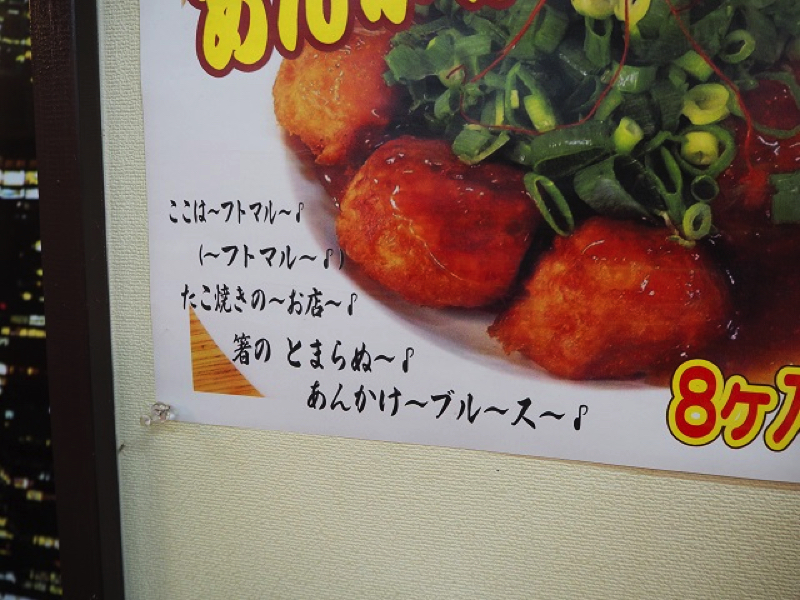 あんか
ここは～フトマル～♪
(～フトマル～♪)
たこ焼きの～お店～♪
箸の とまらぬ～♪
あんかけ～ブル～ス～♪
8ヶ入